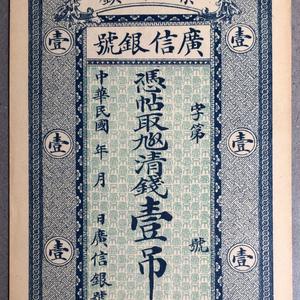 廣信銀號
壹
壹
字第　號
憑帖取九八清錢壹吊
中華民國　年　月　日廣信銀號
壹
壹
壹
壹